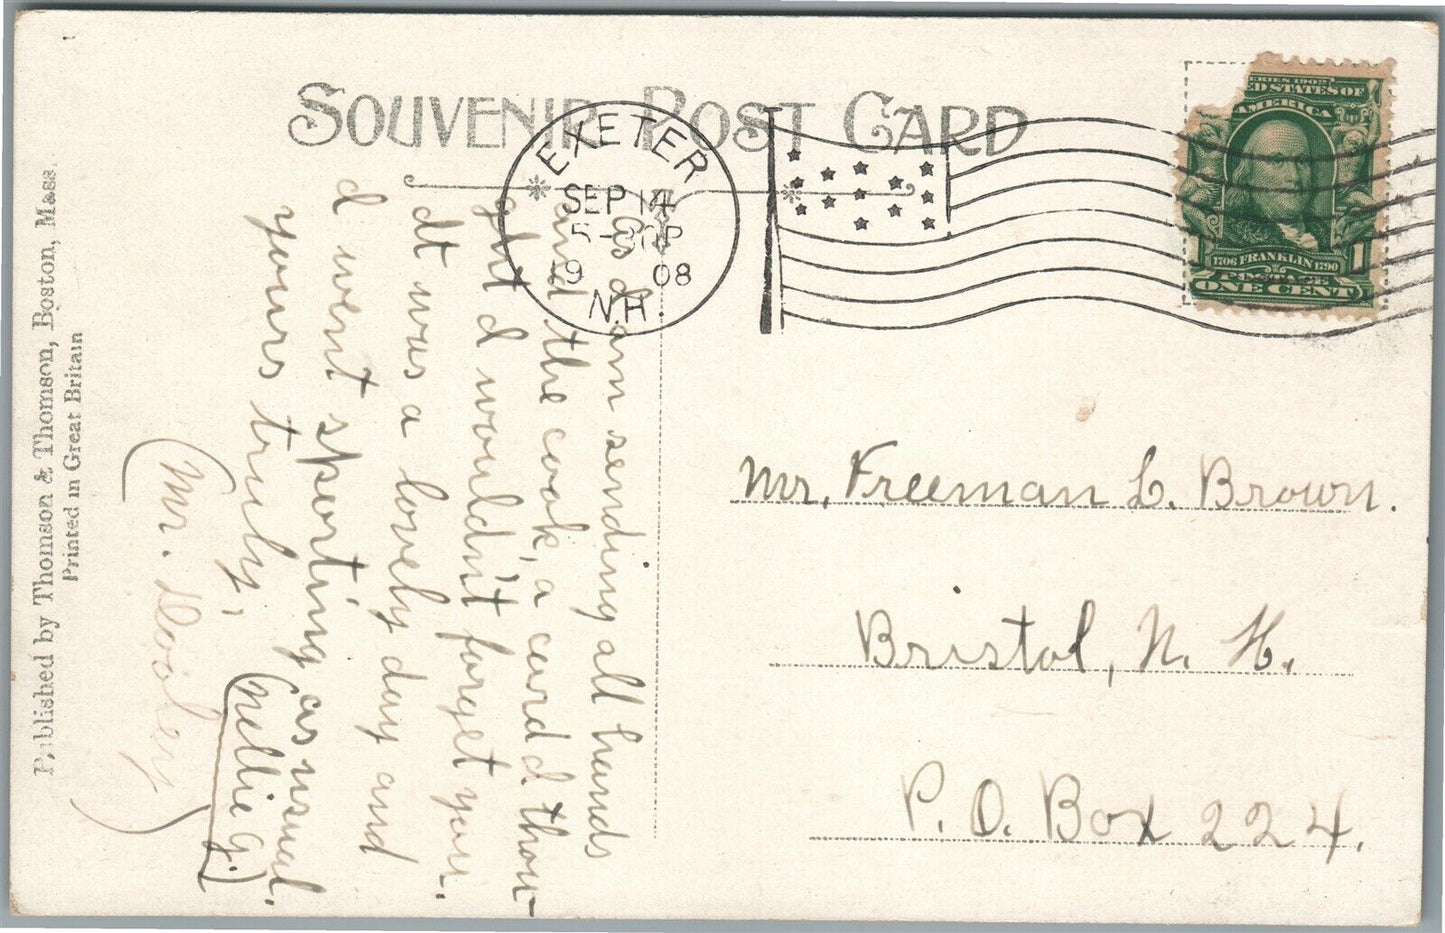 SOUVENIR POST CARD
EXETER
SEP 14
5-30P
1908
N.H.
SERIES 1902
UNITED STATES OF
AMERICA
1706 FRANKLIN 1790
1 1
POSTAGE
ONE CENT
Mr. Freeman L. Brown.
Bristol, N. H.
P. O. Box 224.
As I am sending all hands
and the cook, a card I thou-
ght I wouldn't forget you.
It was a lovely day and
I went sporting as usual.
yours truly,
(Nellie G.)
(Mr. Dooley)
Published by Thomson & Thomson, Boston, Mass.
Printed in Great Britain